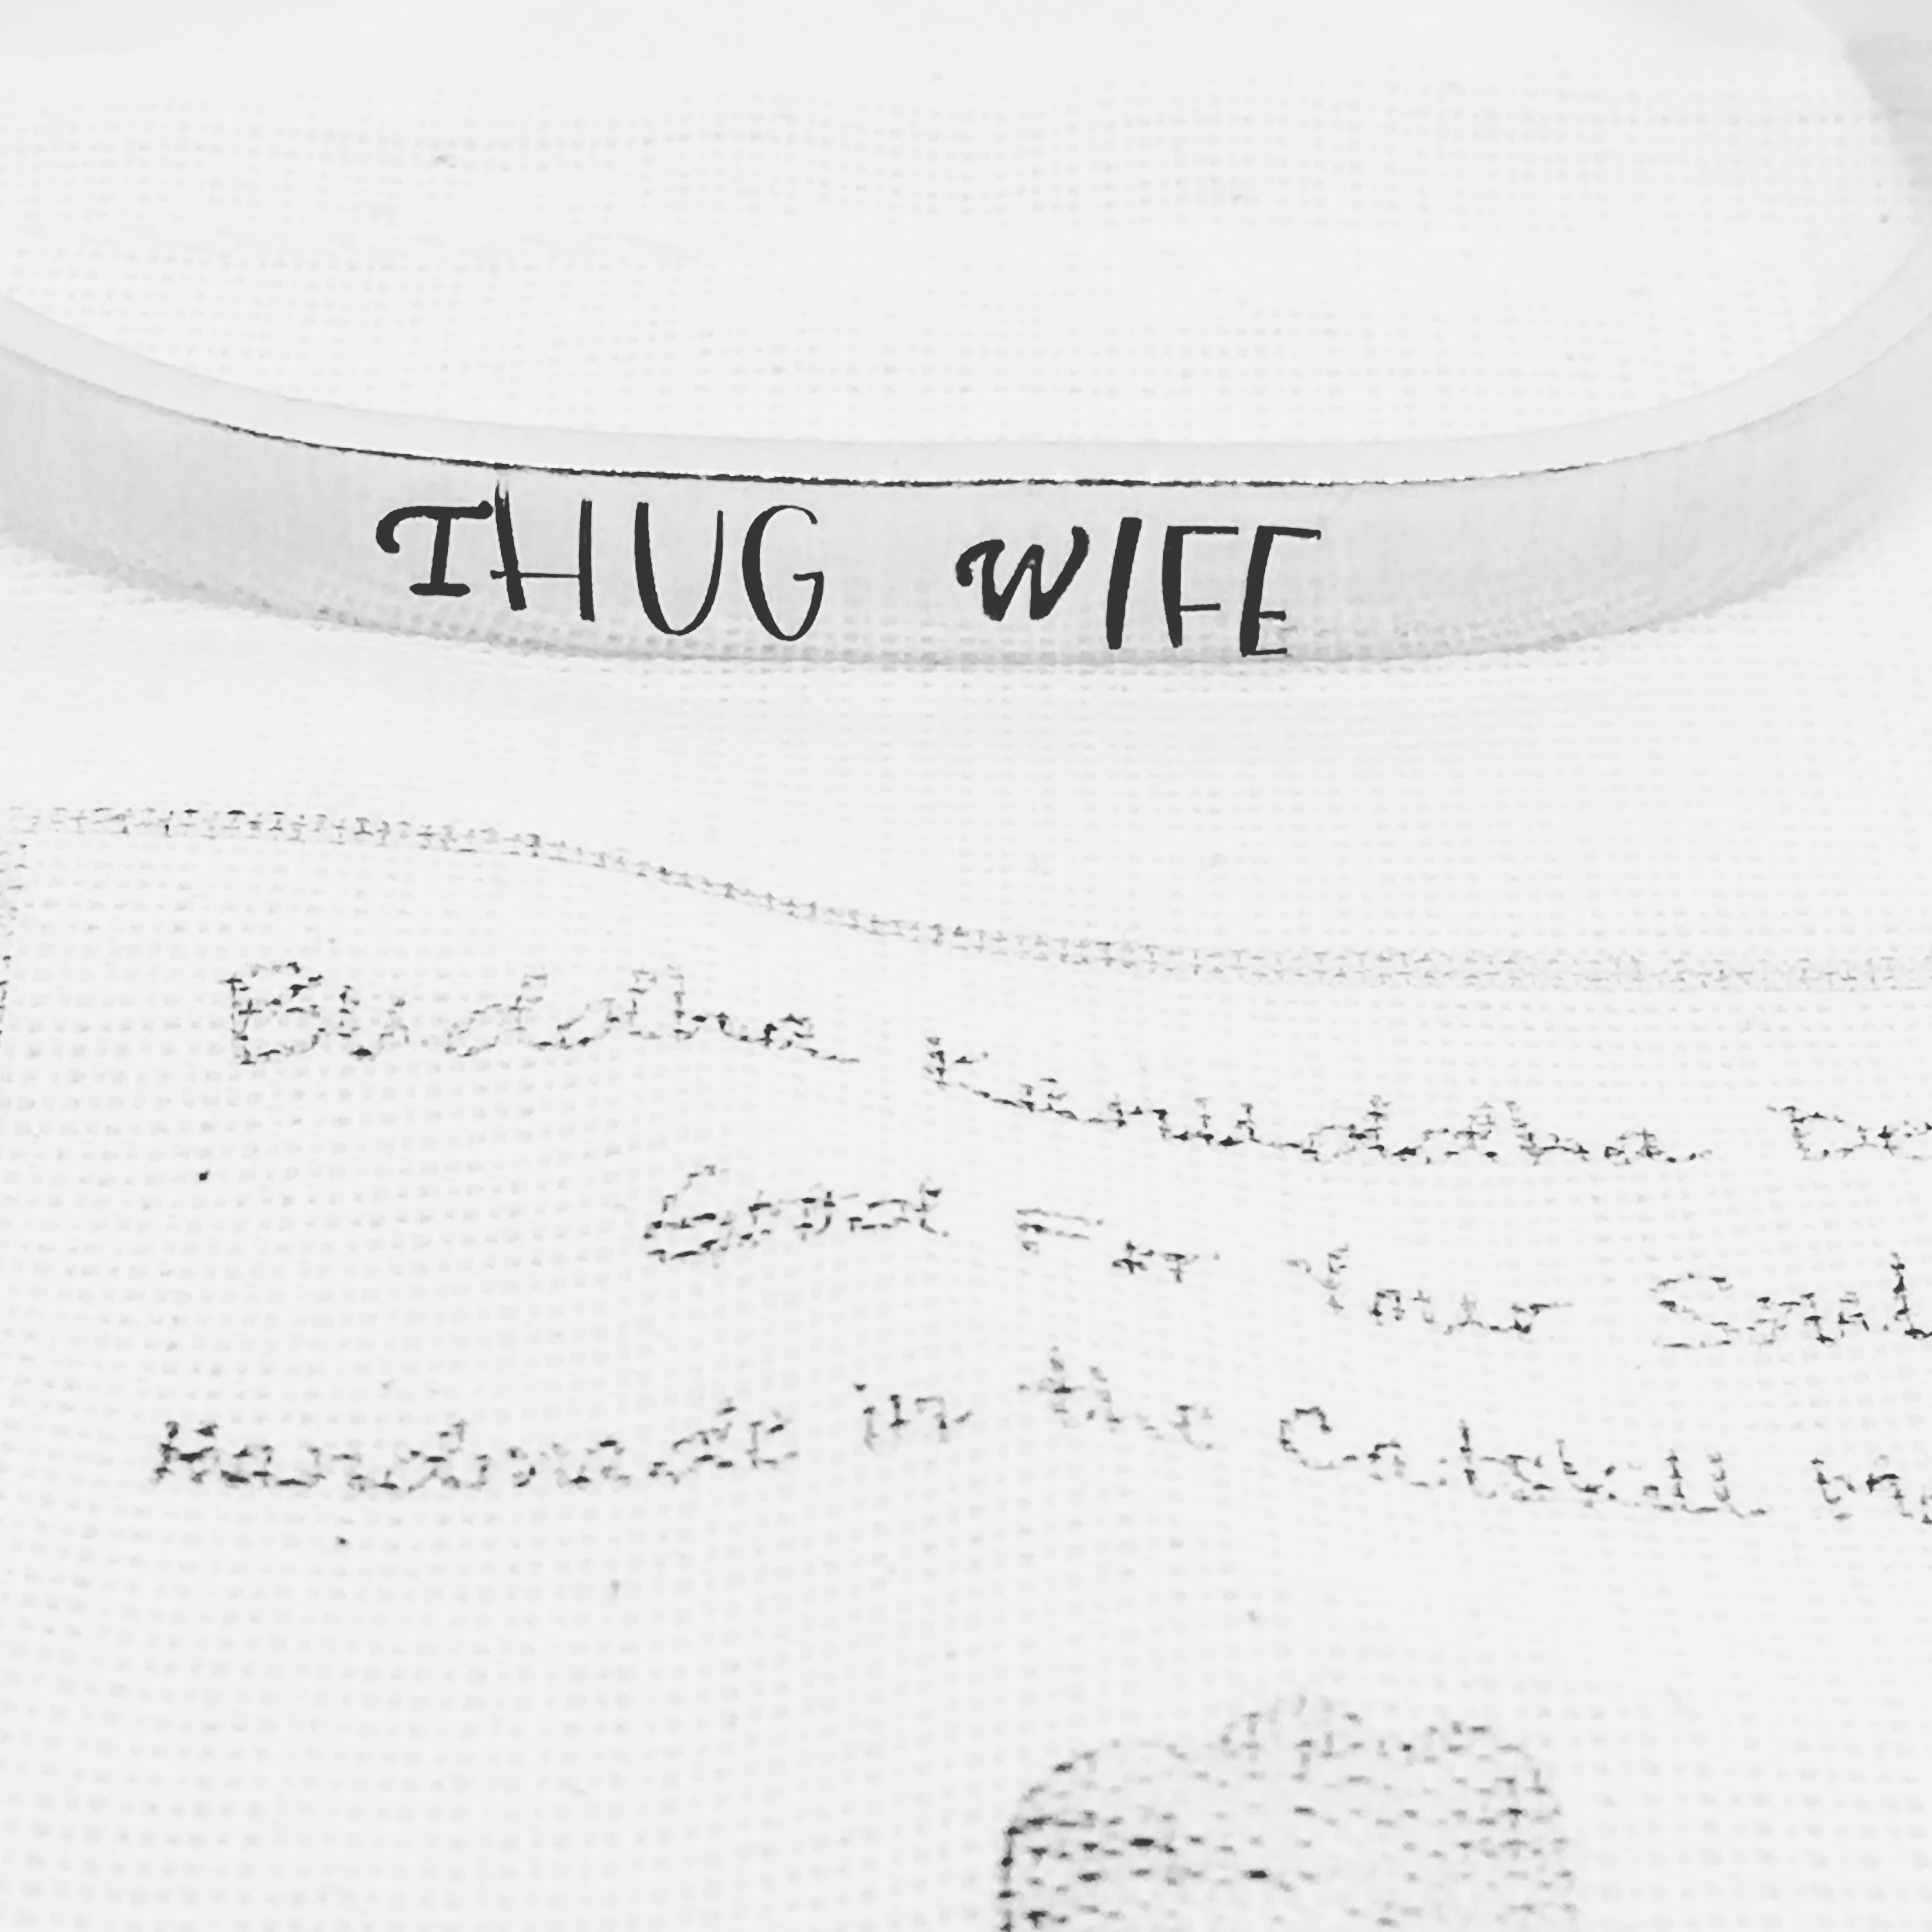 THUG WIFE
Buddha
Good For Your Soul
Handmade in the Catskill